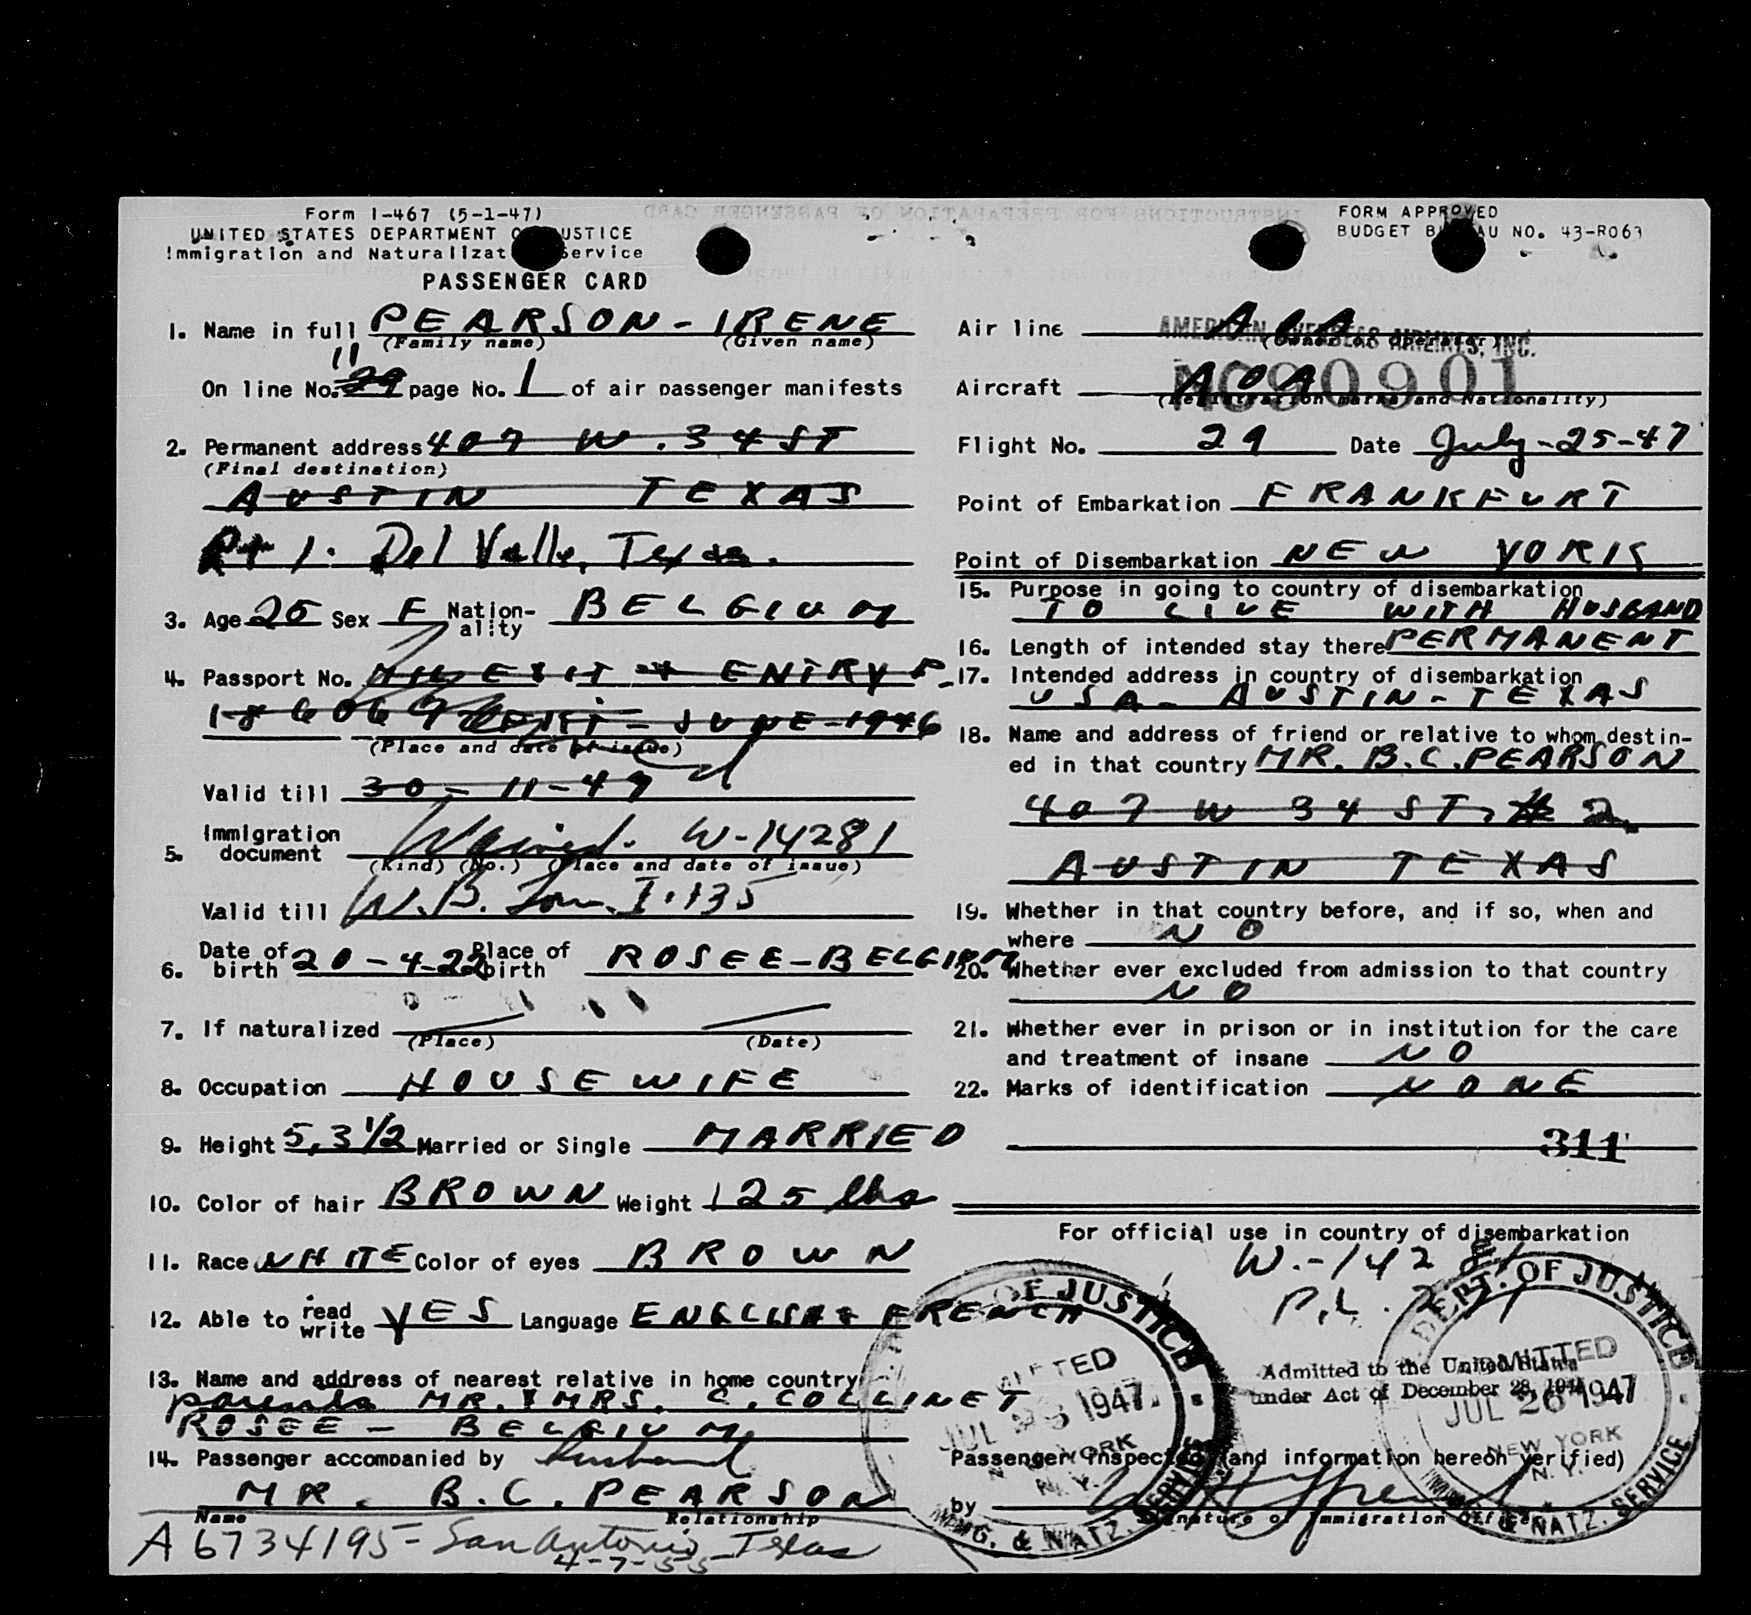 Form I-467 (5-1-47)
UNITED STATES DEPARTMENT OF JUSTICE
Immigration and Naturalization Service
PASSENGER CARD
FORM APPROVED
BUDGET BUREAU NO. 43-R063
1. Name in full PEARSON - IRENE
(Family name) (Given name)
11
On line No. 29 page No. 1 of air passenger manifests
2. Permanent address 407 W. 34 ST
(Final destination)
AUSTIN TEXAS
Rt 1. Del Valle, Texas.
3. Age 25 Sex F Nation-ality BELGIUM
4. Passport No. EXIT ENTRY P
186069 JUNE-1946
(Place and date of issue)
Valid till 30-11-47
5. Immigration document Waived. W-14281
(Kind) (No.) (Place and date of issue)
Valid till W.B.
6. Date of birth 20-4-22 Place of birth ROSEE-BELGIUM
7. If naturalized
(Place) (Date)
8. Occupation HOUSEWIFE
9. Height 5,3 1/2 Married or Single MARRIED
10. Color of hair BROWN Weight 125 lbs
11. Race WHITE Color of eyes BROWN
12. Able to read write YES Language ENGLISH & FRENCH
13. Name and address of nearest relative in home country
parents MR. & MRS. C. COLLINET
ROSEE - BELGIUM
14. Passenger accompanied by husband
MR. B.C. PEARSON
Name Relationship
A6734195 - San Antonio, Texas
4-7-55
Air line AOA
AMERICAN OVERSEAS AIRLINES, INC.
(Owner or operator)
Aircraft AOA
NC90901
(Registration marks and Nationality)
Flight No. 29 Date July-25-47
Point of Embarkation FRANKFURT
Point of Disembarkation NEW YORK
15. Purpose in going to country of disembarkation
TO LIVE WITH HUSBAND
16. Length of intended stay there PERMANENT
17. Intended address in country of disembarkation
USA - AUSTIN - TEXAS
18. Name and address of friend or relative to whom destin-
ed in that country MR. B.C. PEARSON
407 W 34 ST, # 2
AUSTIN TEXAS
19. Whether in that country before, and if so, when and
where NO
20. Whether ever excluded from admission to that country
NO
21. Whether ever in prison or in institution for the care
and treatment of insane NO
22. Marks of identification NONE
311
For official use in country of disembarkation
W.-14281
P.L. 271
Admitted to the United States
under Act of December 28, 1945
Passenger inspected (and information hereon verified)
by
Signature of Immigration Officer
DEPT. OF JUSTICE
ADMITTED
JUL 26 1947
NEW YORK
N.Y.
IMMIG. & NATZ. SERVICE
DEPT. OF JUSTICE
ADMITTED
JUL 26 1947
NEW YORK
N.Y.
IMMIG. & NATZ. SERVICE